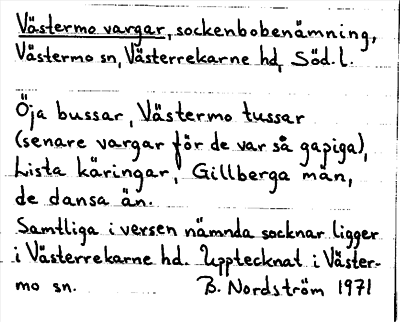 Västermo vargar, sockenbobenämning,
Västermo sn, Västerrekarne hd, Söd.l.
Öja bussar, Västermo tussar
(senare vargar för de var så gapiga),
Lista käringar, Gillberga män,
de dansa än.
Samtliga i versen nämnda socknar ligger
i Västerrekarne hd. Upptecknat i Väster-
mo sn. B. Nordström 1971